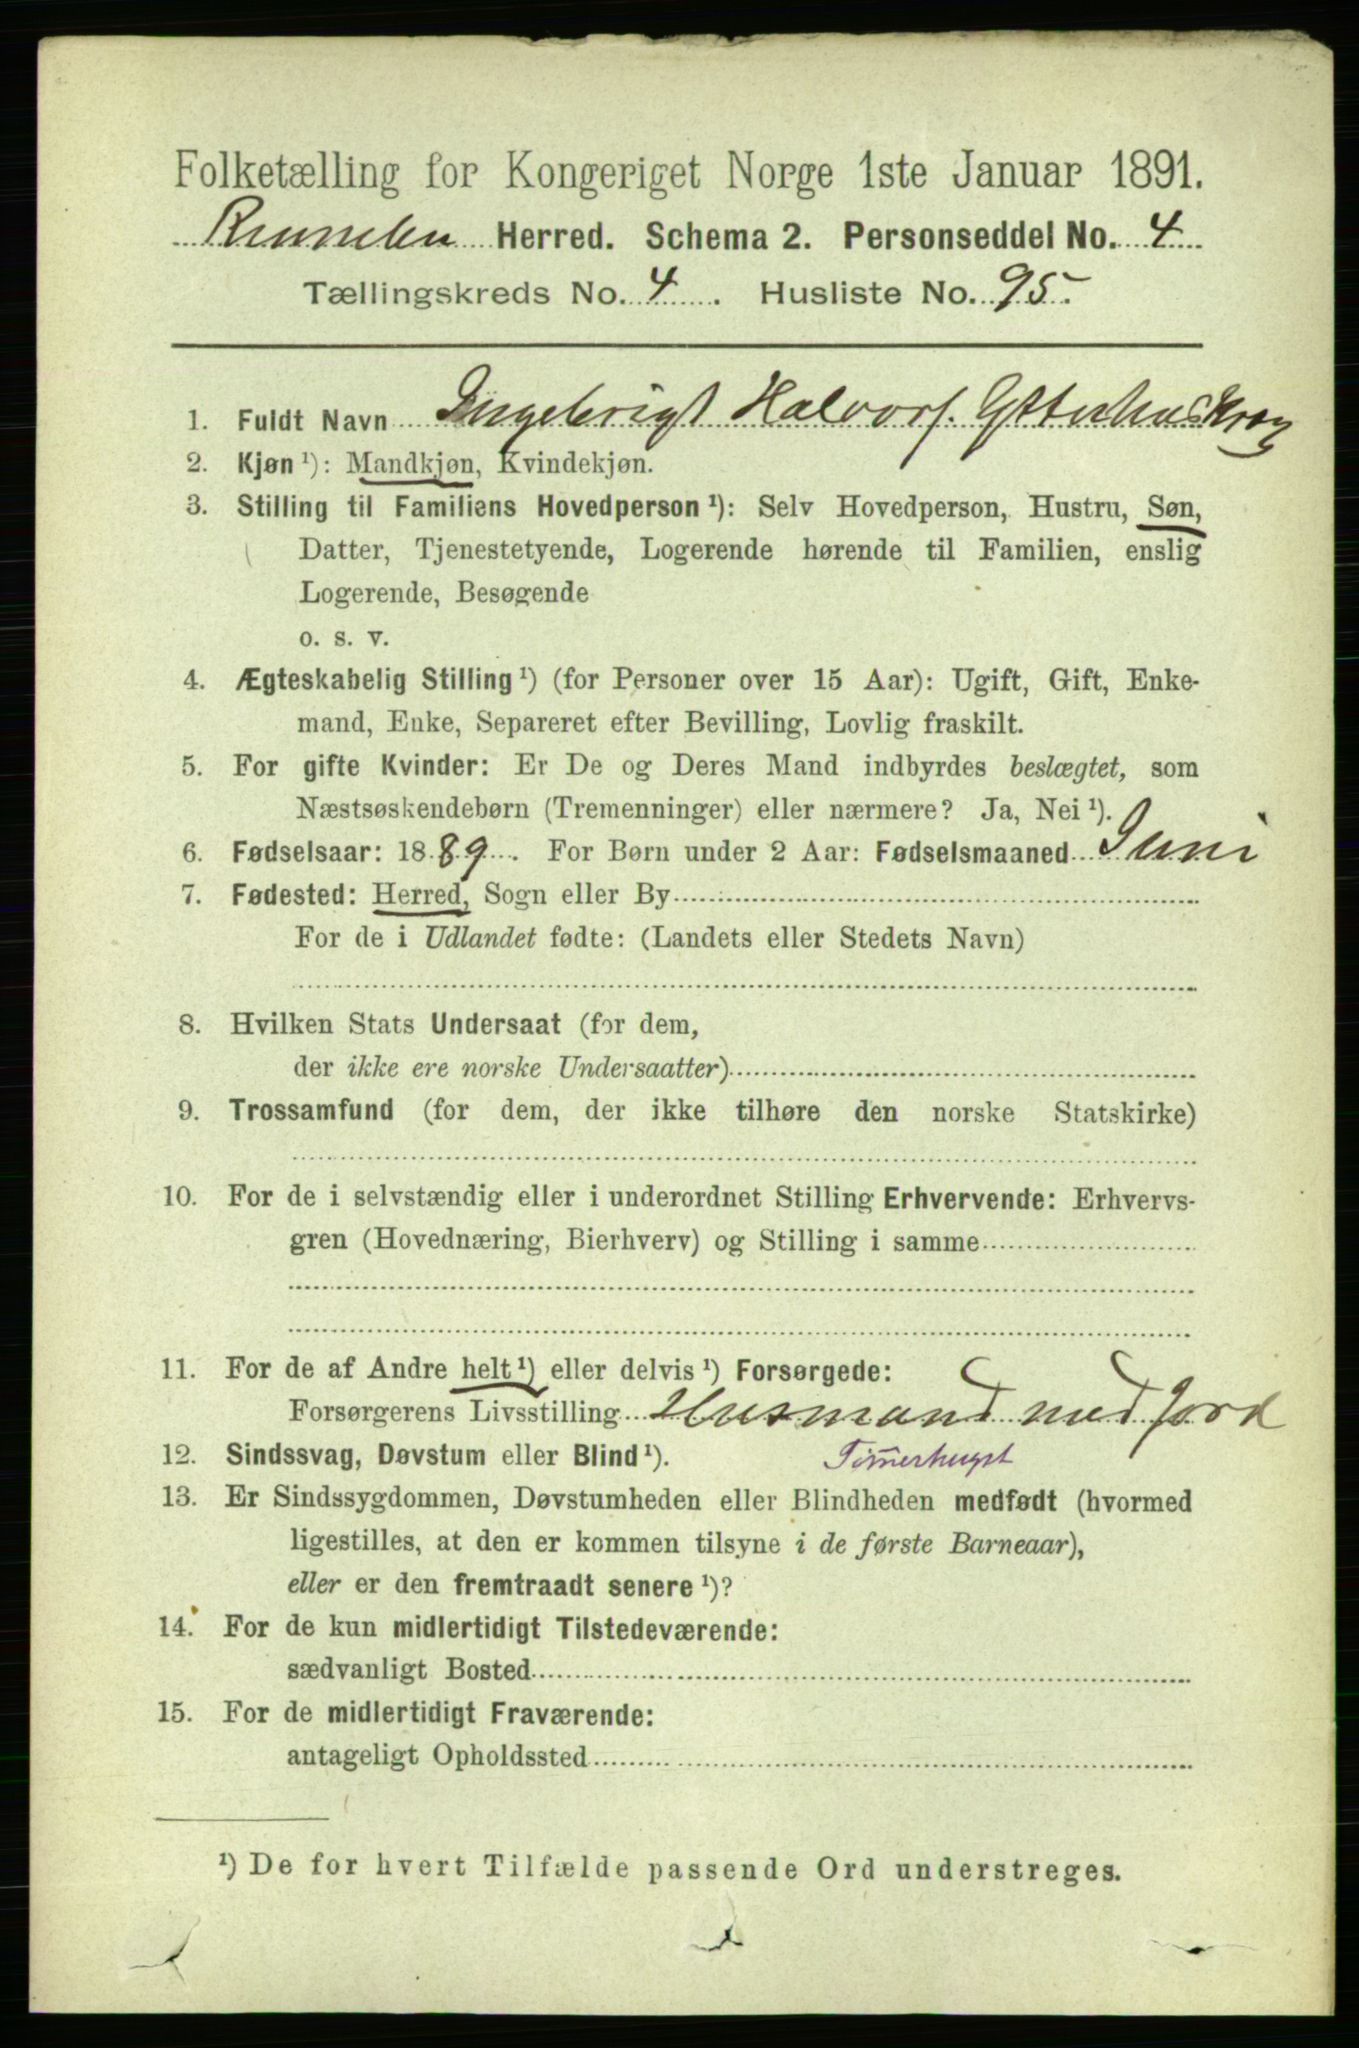 Folketælling for Kongeriget Norge 1ste Januar 1891.
Rennebu Herred. Schema 2. Personseddel No. 4
Tællingskreds No. 4. Husliste No. 95.
1. Fuldt Navn Ingebrigt Halvors. Ytterhus Krog
2. Kjøn ¹): Mandkjøn, Kvindekjøn.
3. Stilling til Familiens Hovedperson ¹): Selv Hovedperson, Hustru, Søn,
Datter, Tjenestetyende, Logerende hørende til Familien, enslig
Logerende, Besøgende
o. s. v.
4. Ægteskabelig Stilling ¹) (for Personer over 15 Aar): Ugift, Gift, Enke-
mand, Enke, Separeret efter Bevilling, Lovlig fraskilt.
5. For gifte Kvinder: Er De og Deres Mand indbyrdes beslægtet, som
Næstsøskendebørn (Tremenninger) eller nærmere? Ja, Nei ¹).
6. Fødselsaar: 1889. For Børn under 2 Aar: Fødselsmaaned Juni
7. Fødested: Herred, Sogn eller By
For de i Udlandet fødte: (Landets eller Stedets Navn)
8. Hvilken Stats Undersaat (for dem,
der ikke ere norske Undersaatter)
9. Trossamfund (for dem, der ikke tilhøre den norske Statskirke)
10. For de i selvstændig eller i underordnet Stilling Erhvervende: Erhvervs-
gren (Hovednæring, Bierhverv) og Stilling i samme
11. For de af Andre helt ¹) eller delvis ¹) Forsørgede:
Forsørgerens Livsstilling Husmand med Jord
12. Sindssvag, Døvstum eller Blind ¹). Tim̄erhugst
13. Er Sindssygdommen, Døvstumheden eller Blindheden medfødt (hvormed
ligestilles, at den er kommen tilsyne i de første Barneaar),
eller er den fremtraadt senere ¹)?
14. For de kun midlertidigt Tilstedeværende:
sædvanligt Bosted
15. For de midlertidigt Fraværende:
antageligt Opholdssted
¹) De for hvert Tilfælde passende Ord understreges.